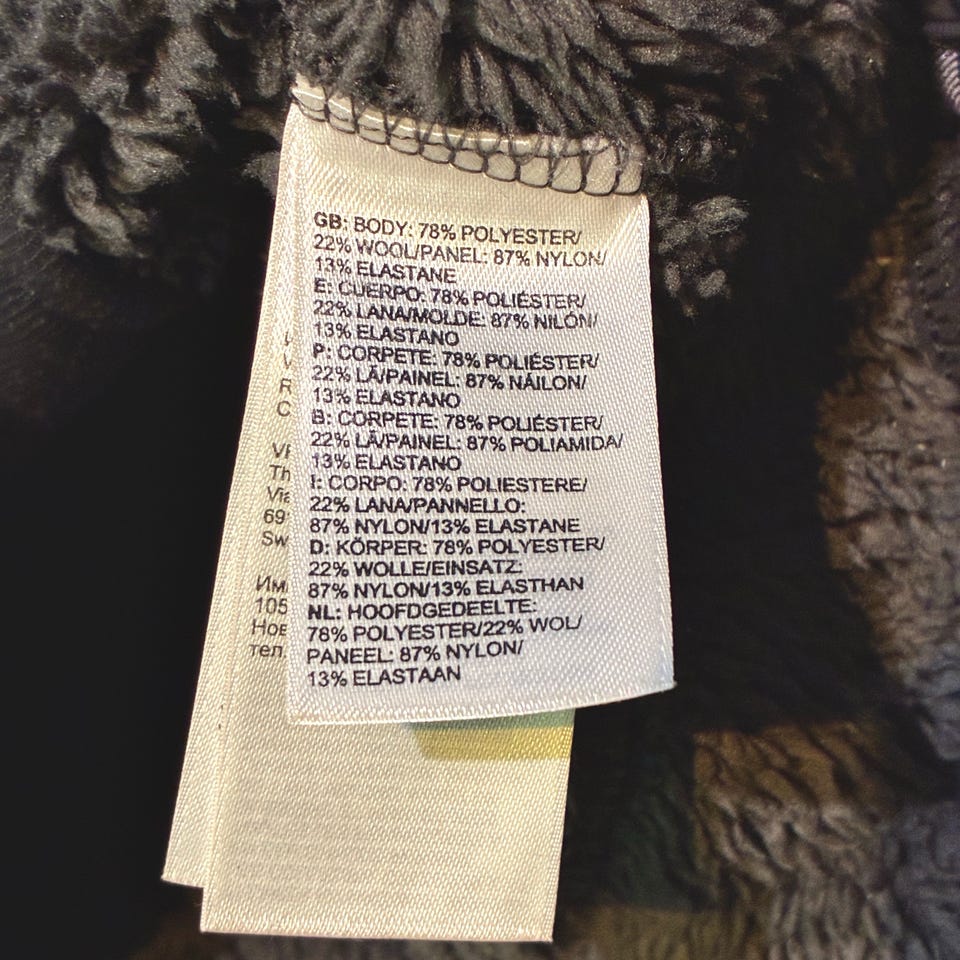 GB: BODY: 78% POLYESTER/
22% WOOL/PANEL: 87% NYLON/
13% ELASTANE
E: CUERPO: 78% POLIÉSTER/
22% LANA/MOLDE: 87% NILÓN/
13% ELASTANO
P: CORPETE: 78% POLIÉSTER/
22% LÃ/PAINEL: 87% NÁILON/
13% ELASTANO
B: CORPETE: 78% POLIÉSTER/
22% LÃ/PAINEL: 87% POLIAMIDA/
13% ELASTANO
I: CORPO: 78% POLIESTERE/
22% LANA/PANNELLO:
87% NYLON/13% ELASTANE
D: KÖRPER: 78% POLYESTER/
22% WOLLE/EINSATZ:
87% NYLON/13% ELASTHAN
NL: HOOFDGEDEELTE:
78% POLYESTER/22% WOL/
PANEEL: 87% NYLON/
13% ELASTAAN
R
C
VF
Th
Via
69
Sw
Им
105
Нов
тел